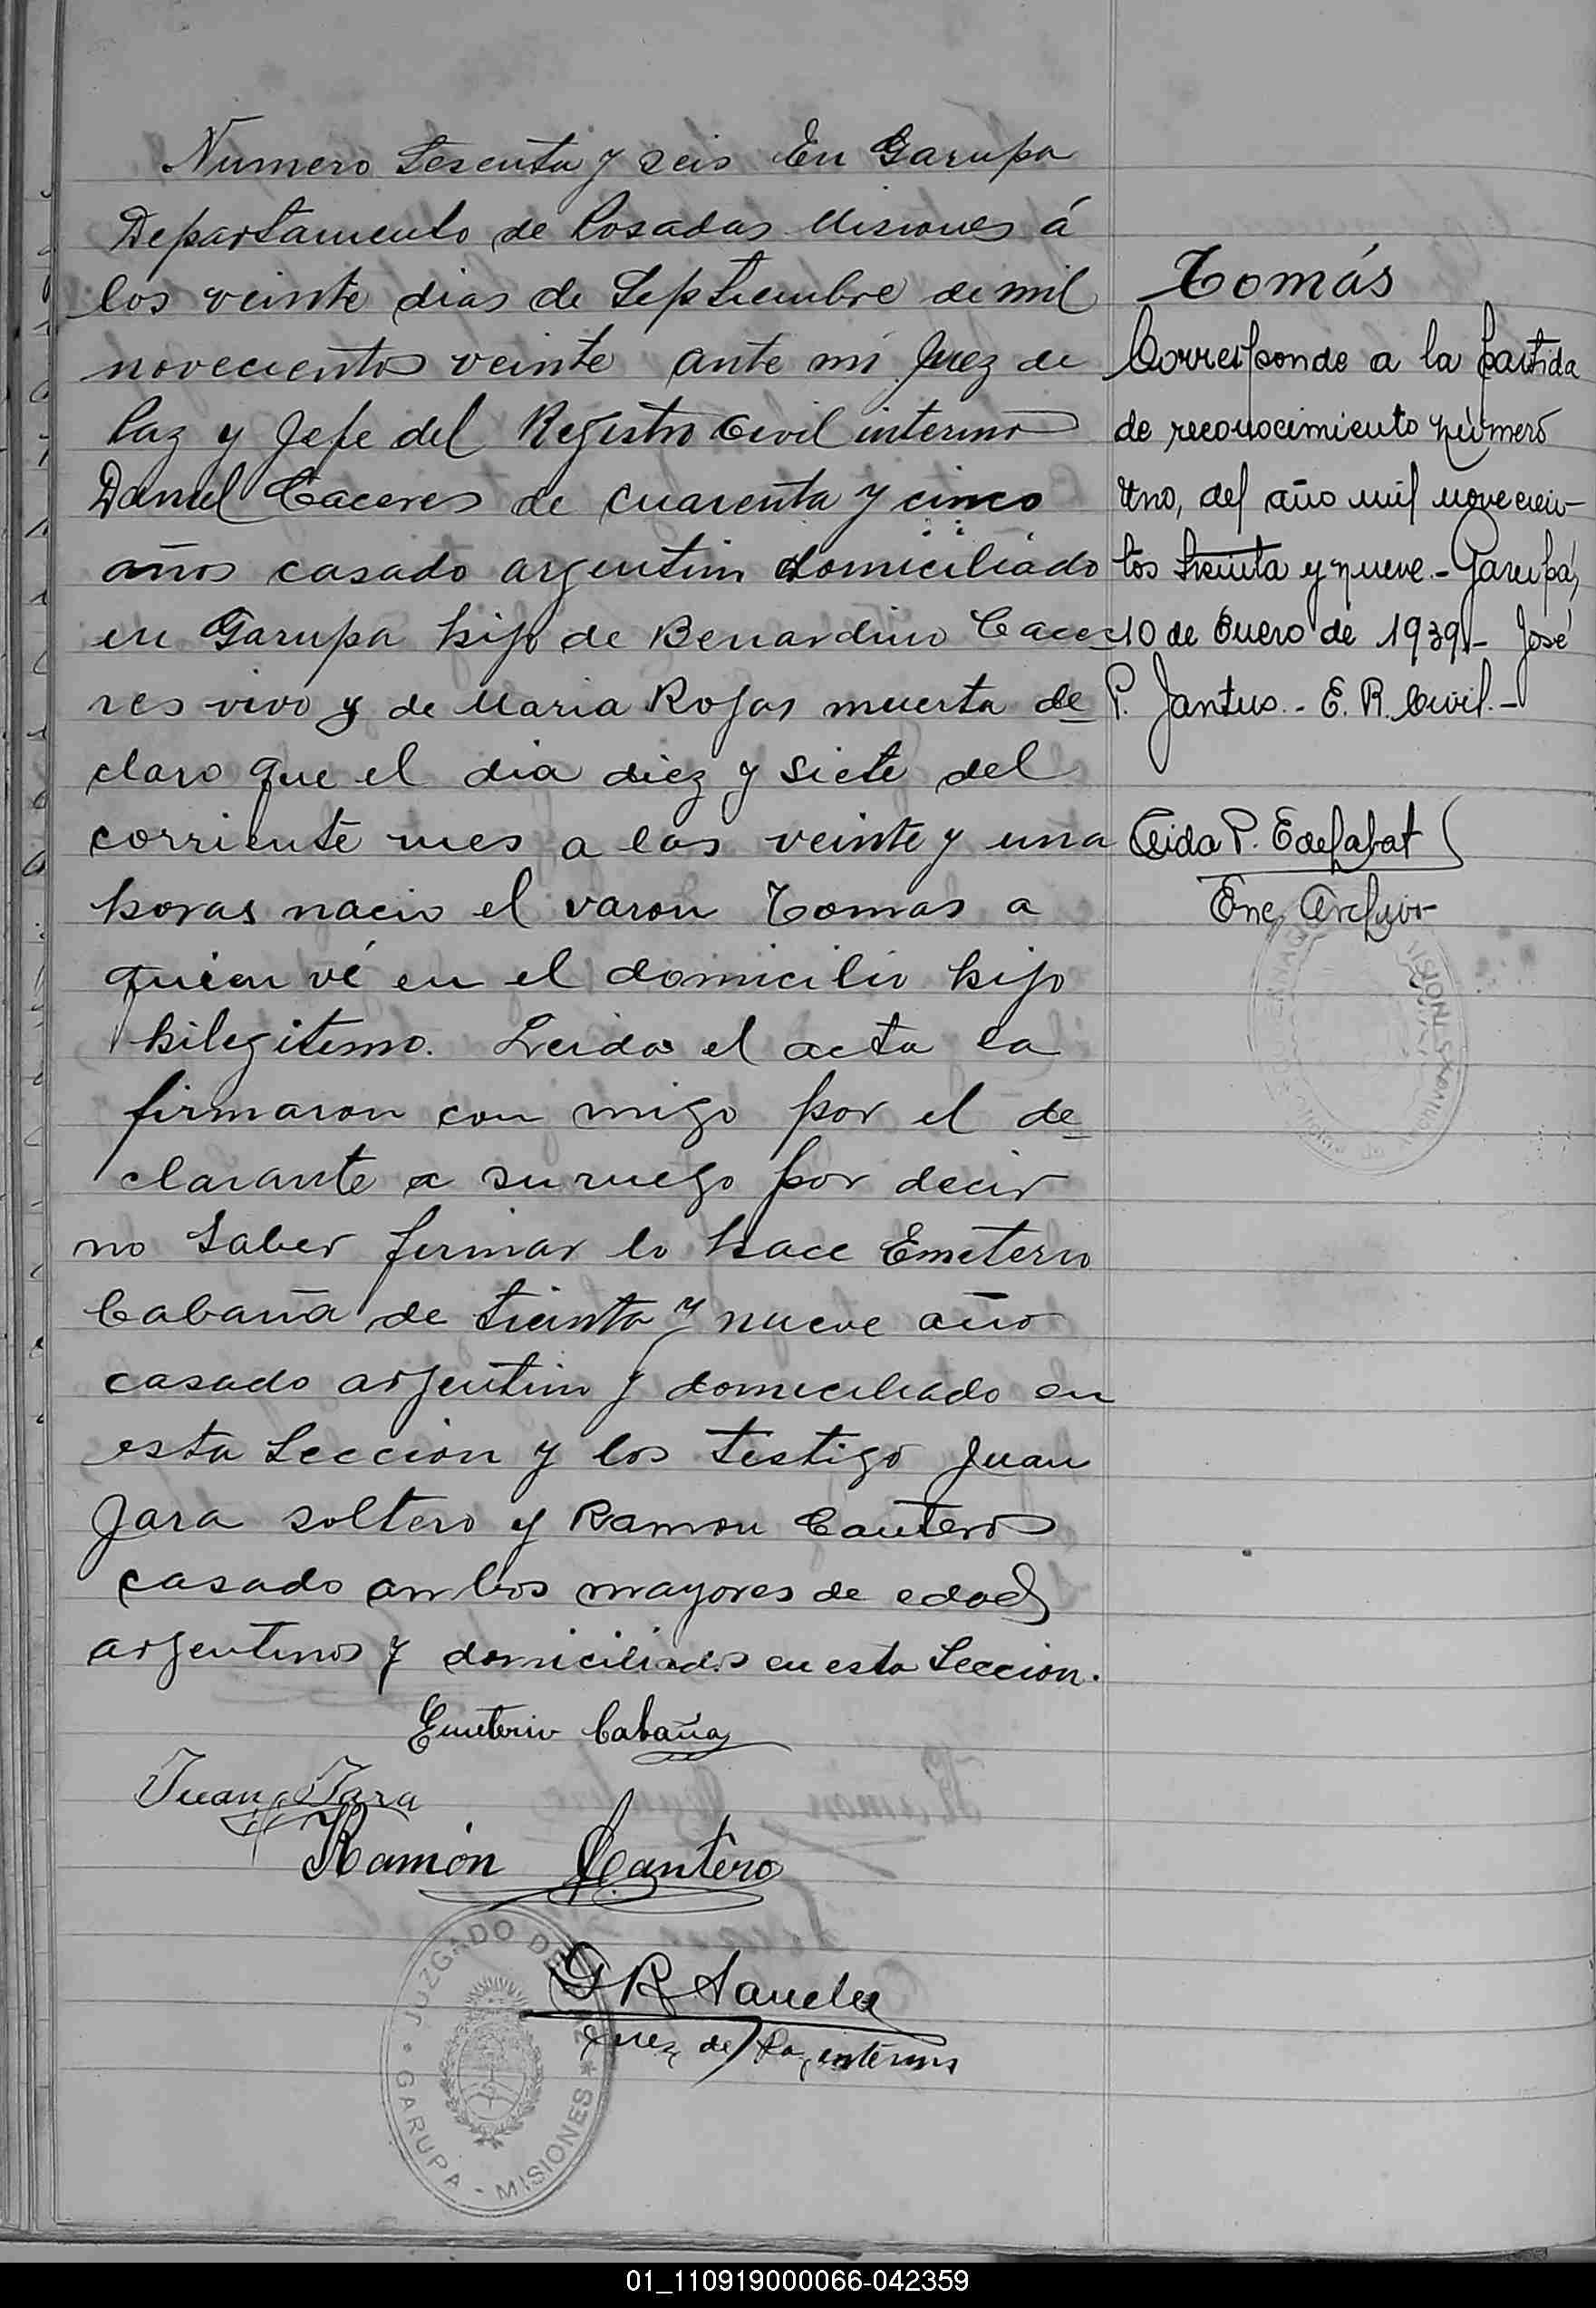 Numero Sesenta y seis En Garupa
Departamento de Posadas Misiones á
los veinte dias de Septiembre de mil
novecientos veinte ante mi Juez de
Paz y Jefe del Registro Civil interino
Daniel Caceres de cuarenta y cinco
años casado argentino domiciliado
en Garupa hijo de Bernardino Cace-
res vivo y de Maria Rojas muerta de-
claro que el dia diez y siete del
corriente mes a las veinte y una
horas nacio el varon Tomas a
quien vé en el domicilio hijo
hilegitemo. Leida el acta la
firmaron con migo por el de-
clarante a su ruego por decir
no saber firmar lo hace Emeterio
Cabaña de treinta y nueve año
casado argentino y domiciliado en
esta Seccion y los testigo Juan
Jara soltero y Ramon Cantero
casado ambos mayores de edad
argentinos y domiciliados en esta Seccion.
Emeterio Cabaña
Juan Jara
Ramón Cantero
G R
Juez de Paz interino
JUZGADO DE PAZ
* GARUPA - MISIONES *
Tomás
Corresponde a la partida
de reconocimiento número
uno, del año mil novecien-
tos treinta y nueve.- Garupá,
10 de Enero de 1939.- José
P. Jantus.- E. R. Civil.-
P.
Enc. Archivo
01_110919000066-042359